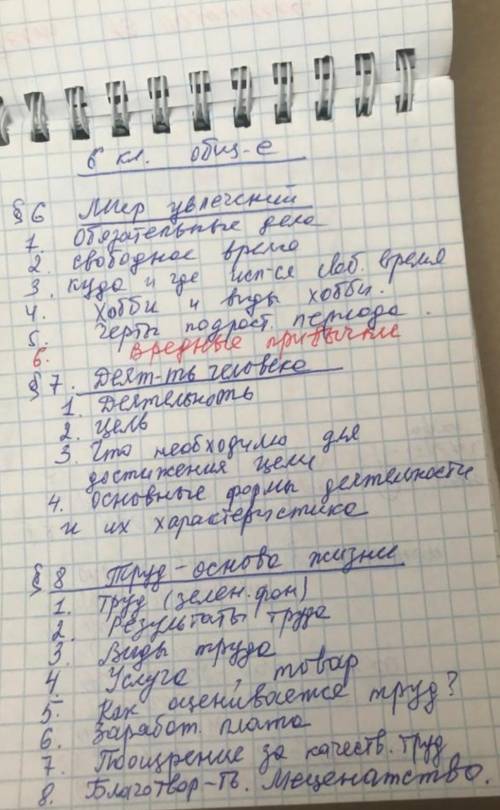 6 кл. общ-е
§6 Мир увлечений
1. Обязательные дела
2. Свободное время
3. Куда и где исп-ся своб. время
4. Хобби и виды хобби.
5. Черты подрост. периода.
6. Вредные привычки
§7. Деят-ть человека
1. Деятельность
2. Цель
3. Что необходимо для
достижения цели
4. Основные формы деятельности
и их характеристика
§8 Труд – основа жизни
1. Труд (зелен. фон)
2. Результаты труда
3. Виды труда
4. Услуга, товар
5. Как оценивается труд?
6. Заработ. плата
7. Поощрение за качеств. труд
8. Благотвор-ть. Меценатство.